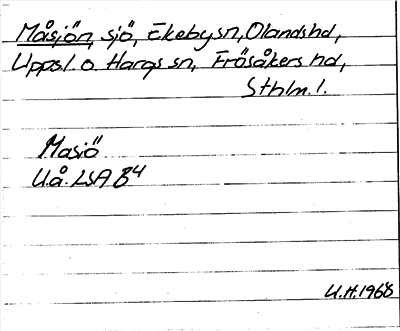 Måsjön, sjö, Ekeby sn, Olands hd,
Uppsl. o. Hargs sn, Frösåkers hd,
Sthlm. l.
Masiö
U.å. LSA B4
U.H. 1968